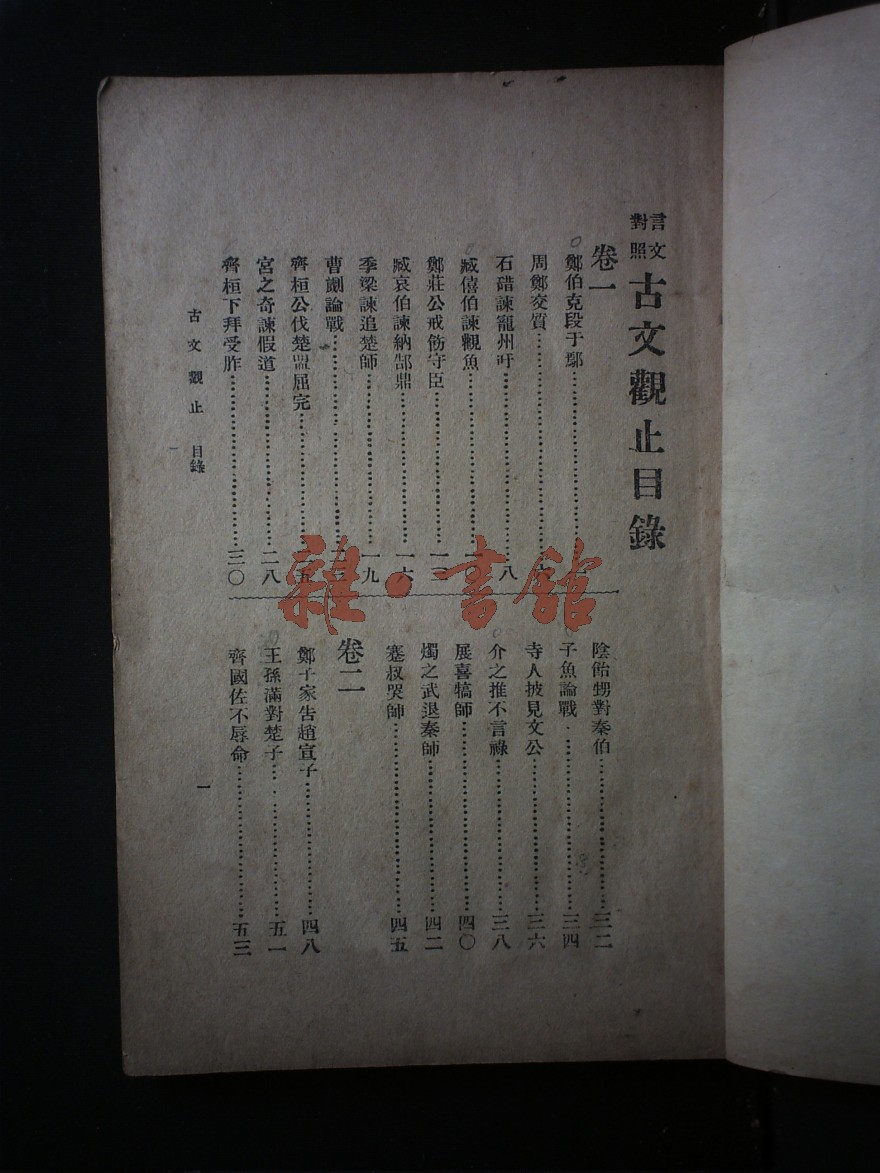 言文對照 古文觀止目錄
卷一
鄭伯克段于鄢……一
周鄭交質……
石碏諫寵州吁……八
臧僖伯諫觀魚……一〇
鄭莊公戒飭守臣……一三
臧哀伯諫納郜鼎……一六
季梁諫追楚師……一九
曹劌論戰……二三
齊桓公伐楚盟屈完……二五
宮之奇諫假道……二八
齊桓下拜受胙……三〇
陰飴甥對秦伯……三二
子魚論戰……三四
寺人披見文公……三六
介之推不言祿……三八
展喜犒師……四〇
燭之武退秦師……四二
蹇叔哭師……四五
卷二
鄭子家告趙宣子……四八
王孫滿對楚子……五一
齊國佐不辱命……五三
古文觀止 目錄
一
雜·書館